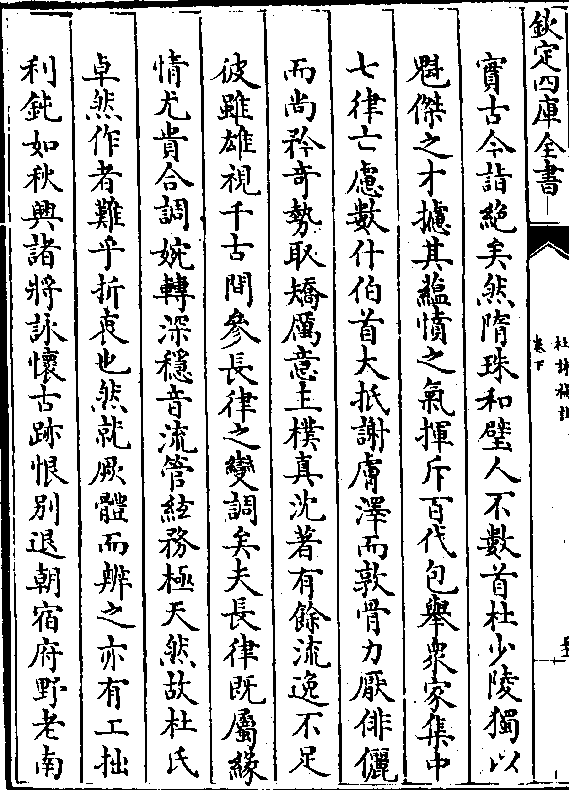 欽定四庫全書
卷下
實古今詣絶矣然隋珠和璧人不數首杜少陵獨以
魁傑之才攄其蘊憤之氣揮斥百代包舉衆家集中
七律亡慮數什伯首大抵謝膚澤而敦骨力厭俳儷
而尚矜竒勢取矯厲意主樸真沈著有餘流逸不足
彼雖雄視千古間參長律之變調矣夫長律既屬緣
情尤貴合調婉轉深穩音流管絃務極天然故杜氏
卓然作者難乎折衷也然就厥體而辨之亦有工拙
利鈍如秋興諸將詠懐古跡恨别退朝宿府野老南